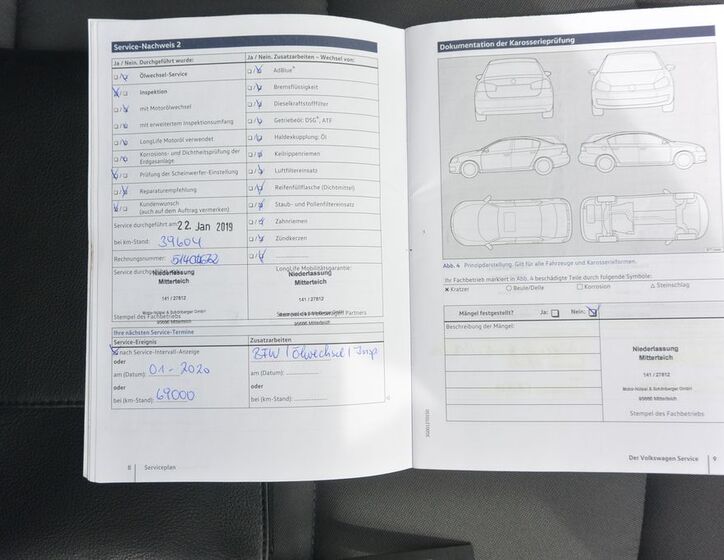 Service-Nachweis 2
Ja / Nein. Durchgeführt wurde:
Ölwechsel-Service
Inspektion
mit Motorölwechsel
mit erweitertem Inspektionsumfang
LongLife Motoröl verwendet
Korrosions- und Dichtheitsprüfung der
Erdgasanlage
Prüfung der Scheinwerfer-Einstellung
Reparaturempfehlung
Kundenwunsch
(auch auf dem Auftrag vermerken)
Service durchgeführt am: 22. Jan 2019
bei km-Stand: 39604
Rechnungsnummer:
Niederlassung
Mitterteich
141 / 27812
95666 Mitterteich
Stempel des Fachbetriebs
Ja / Nein. Zusatzarbeiten – Wechsel von:
AdBlue®
Bremsflüssigkeit
Dieselkraftstofffilter
Getriebeöl: DSG®, ATF
Haldexkupplung: Öl
Keilrippenriemen
Luftfiltereinsatz
Reifenfüllflasche (Dichtmittel)
Staub- und Pollenfiltereinsatz
Zahnriemen
Zündkerzen
LongLife Mobilitätsgarantie:
Niederlassung
Mitterteich
141 / 27812
95666 Mitterteich
Ihre nächsten Service-Termine
Service-Ereignis
nach Service-Intervall-Anzeige
oder
am (Datum): 01-2020
oder
bei (km-Stand): 69000
Zusatzarbeiten
BFW | Ölwechsel | Insp
am (Datum):
oder
bei (km-Stand):
8 Serviceplan
Dokumentation der Karosserieprüfung
Abb. 4 Prinzipdarstellung. Gilt für alle Fahrzeuge und Karosserieformen.
Ihr Fachbetrieb markiert in Abb. 4 beschädigte Teile durch folgende Symbole:
× Kratzer ○ Beule/Delle □ Korrosion △ Steinschlag
Mängel festgestellt? Ja: Nein:
Beschreibung der Mängel:
Niederlassung
Mitterteich
141 / 27812
95666 Mitterteich
Stempel des Fachbetriebs
Der Volkswagen Service 9